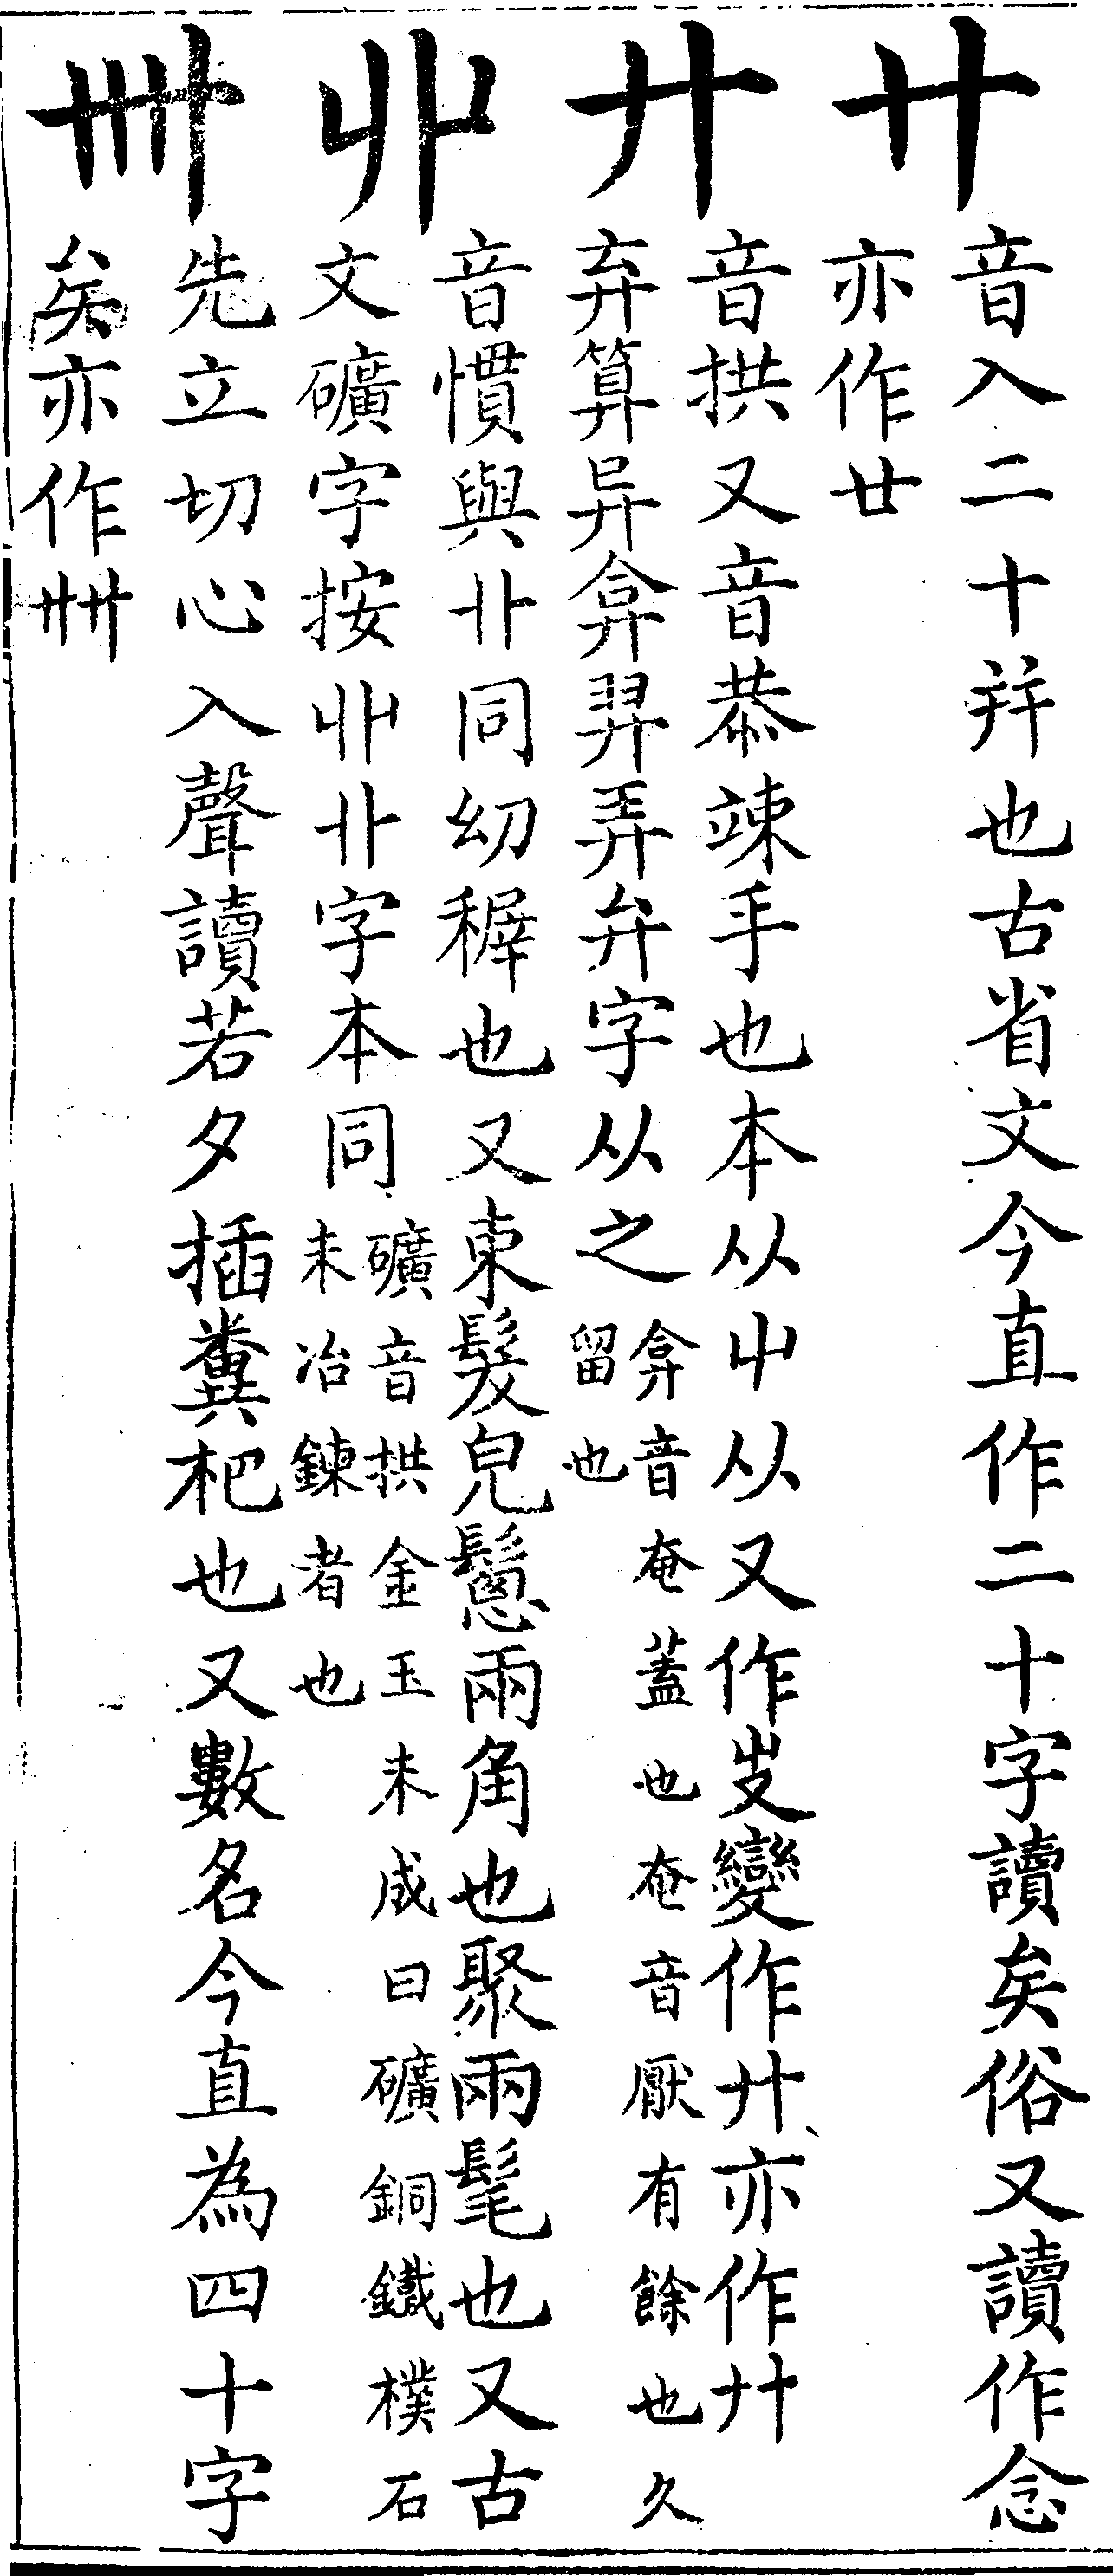 廿
音入二十竝也古省文今直作二十字讀矣俗又讀作念
亦作廿
廾
音拱又音恭竦手也本从屮从又作𠬞變作廾亦作廾
弃算异弇羿弄弁字从之 弇音奄蓋也奄音厭有餘也久
留也
丱
音慣與卝同幼穉也又束髮皃鬆兩角也聚兩髦也又古
文礦字按丱卝字本同 礦音拱金玉未成曰礦銅鐵樸石
未冶鍊者也
卌
先立切心入聲讀若夕插糞杷也又數名今直為四十字
矣亦作卌